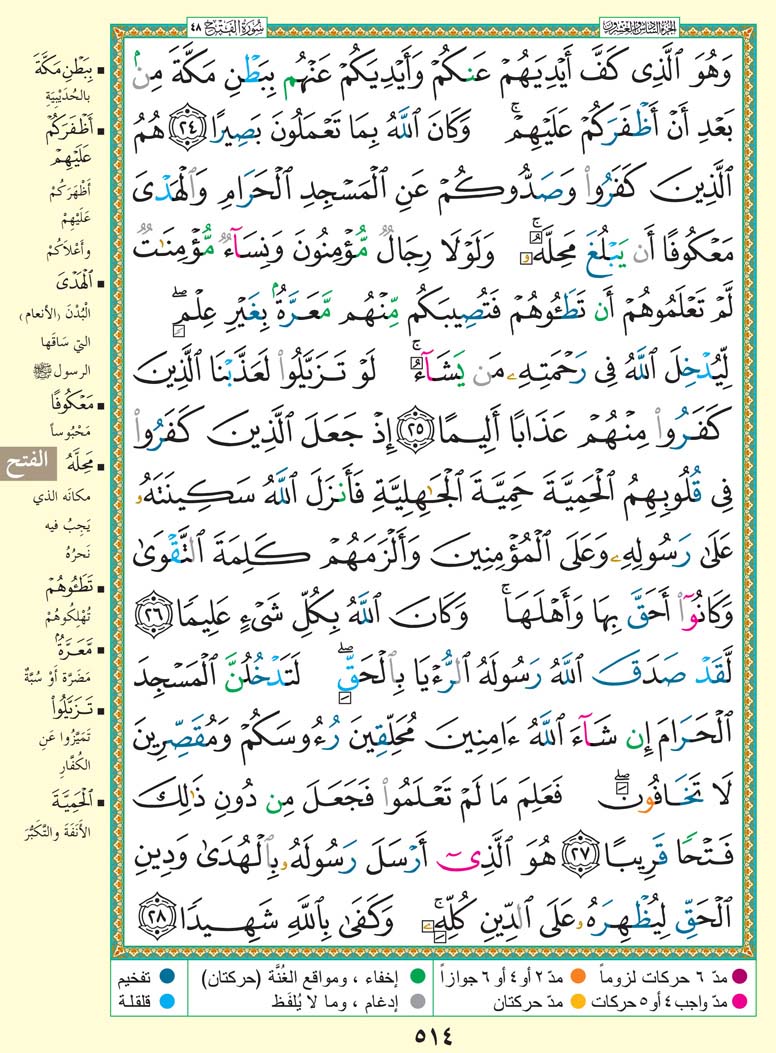 سُورَةُ الفَتْحِ ٤٨
الجزء السادس والعشرون
وَهُوَ ٱلَّذِى كَفَّ أَيْدِيَهُمْ عَنكُمْ وَأَيْدِيَكُمْ عَنْهُم بِبَطْنِ مَكَّةَ مِنۢ
بَعْدِ أَنْ أَظْفَرَكُمْ عَلَيْهِمْ ۚ وَكَانَ ٱللَّهُ بِمَا تَعْمَلُونَ بَصِيرًا ﴿٢٤﴾ هُمُ
ٱلَّذِينَ كَفَرُوا۟ وَصَدُّوكُمْ عَنِ ٱلْمَسْجِدِ ٱلْحَرَامِ وَٱلْهَدْىَ
مَعْكُوفًا أَن يَبْلُغَ مَحِلَّهُۥ ۚ وَلَوْلَا رِجَالٌ مُّؤْمِنُونَ وَنِسَآءٌ مُّؤْمِنَـٰتٌ
لَّمْ تَعْلَمُوهُمْ أَن تَطَـُٔوهُمْ فَتُصِيبَكُم مِّنْهُم مَّعَرَّةٌۢ بِغَيْرِ عِلْمٍ ۖ
لِّيُدْخِلَ ٱللَّهُ فِى رَحْمَتِهِۦ مَن يَشَآءُ ۚ لَوْ تَزَيَّلُوا۟ لَعَذَّبْنَا ٱلَّذِينَ
كَفَرُوا۟ مِنْهُمْ عَذَابًا أَلِيمًا ﴿٢٥﴾ إِذْ جَعَلَ ٱلَّذِينَ كَفَرُوا۟
فِى قُلُوبِهِمُ ٱلْحَمِيَّةَ حَمِيَّةَ ٱلْجَـٰهِلِيَّةِ فَأَنزَلَ ٱللَّهُ سَكِينَتَهُۥ
عَلَىٰ رَسُولِهِۦ وَعَلَى ٱلْمُؤْمِنِينَ وَأَلْزَمَهُمْ كَلِمَةَ ٱلتَّقْوَىٰ
وَكَانُوٓا۟ أَحَقَّ بِهَا وَأَهْلَهَا ۚ وَكَانَ ٱللَّهُ بِكُلِّ شَىْءٍ عَلِيمًا ﴿٢٦﴾
لَّقَدْ صَدَقَ ٱللَّهُ رَسُولَهُ ٱلرُّءْيَا بِٱلْحَقِّ ۖ لَتَدْخُلُنَّ ٱلْمَسْجِدَ
ٱلْحَرَامَ إِن شَآءَ ٱللَّهُ ءَامِنِينَ مُحَلِّقِينَ رُءُوسَكُمْ وَمُقَصِّرِينَ
لَا تَخَافُونَ ۖ فَعَلِمَ مَا لَمْ تَعْلَمُوا۟ فَجَعَلَ مِن دُونِ ذَٰلِكَ
فَتْحًا قَرِيبًا ﴿٢٧﴾ هُوَ ٱلَّذِىٓ أَرْسَلَ رَسُولَهُۥ بِٱلْهُدَىٰ وَدِينِ
ٱلْحَقِّ لِيُظْهِرَهُۥ عَلَى ٱلدِّينِ كُلِّهِۦ ۚ وَكَفَىٰ بِٱللَّهِ شَهِيدًا ﴿٢٨﴾
▪ بِبَطْنِ مَكَّةَ
بالحُدَيْبِيَةِ
▪ أَظْفَرَكُمْ
عَلَيْهِمْ
أَظْهَرَكُمْ
عَلَيْهِمْ
وأَعْلَاكُمْ
▪ ٱلْهَدْىَ
الْبُدْنَ (الأنعام)
التي سَاقَها
الرسول ﷺ
▪ مَعْكُوفًا
مَحْبُوساً
▪ مَحِلَّهُ
مكانَه الذي
يَجِبُ فيه
نَحرُهُ
▪ تَطَـُٔوهُمْ
تُهْلِكُوهُمْ
▪ مَّعَرَّةٌۢ
مَضَرَّة أَوْ سُبَّةٌ
▪ تَزَيَّلُوا۟
تَمَيَّزُوا عَنِ
الكُفَّارِ
▪ ٱلْحَمِيَّةَ
الأَنَفَةَ والتَّكَبُّرَ
الفتح
مدّ ٦ حركات لزوماً
مدّ ٢ أو ٤ أو ٦ جوازاً
مدّ واجب ٤ أو ٥ حركات
مدّ حركتان
إخفاء ، ومواقع الغُنَّة (حركتان)
إدغام ، وما لا يُلفَظ
تفخيم
قلقلة
٥١٤